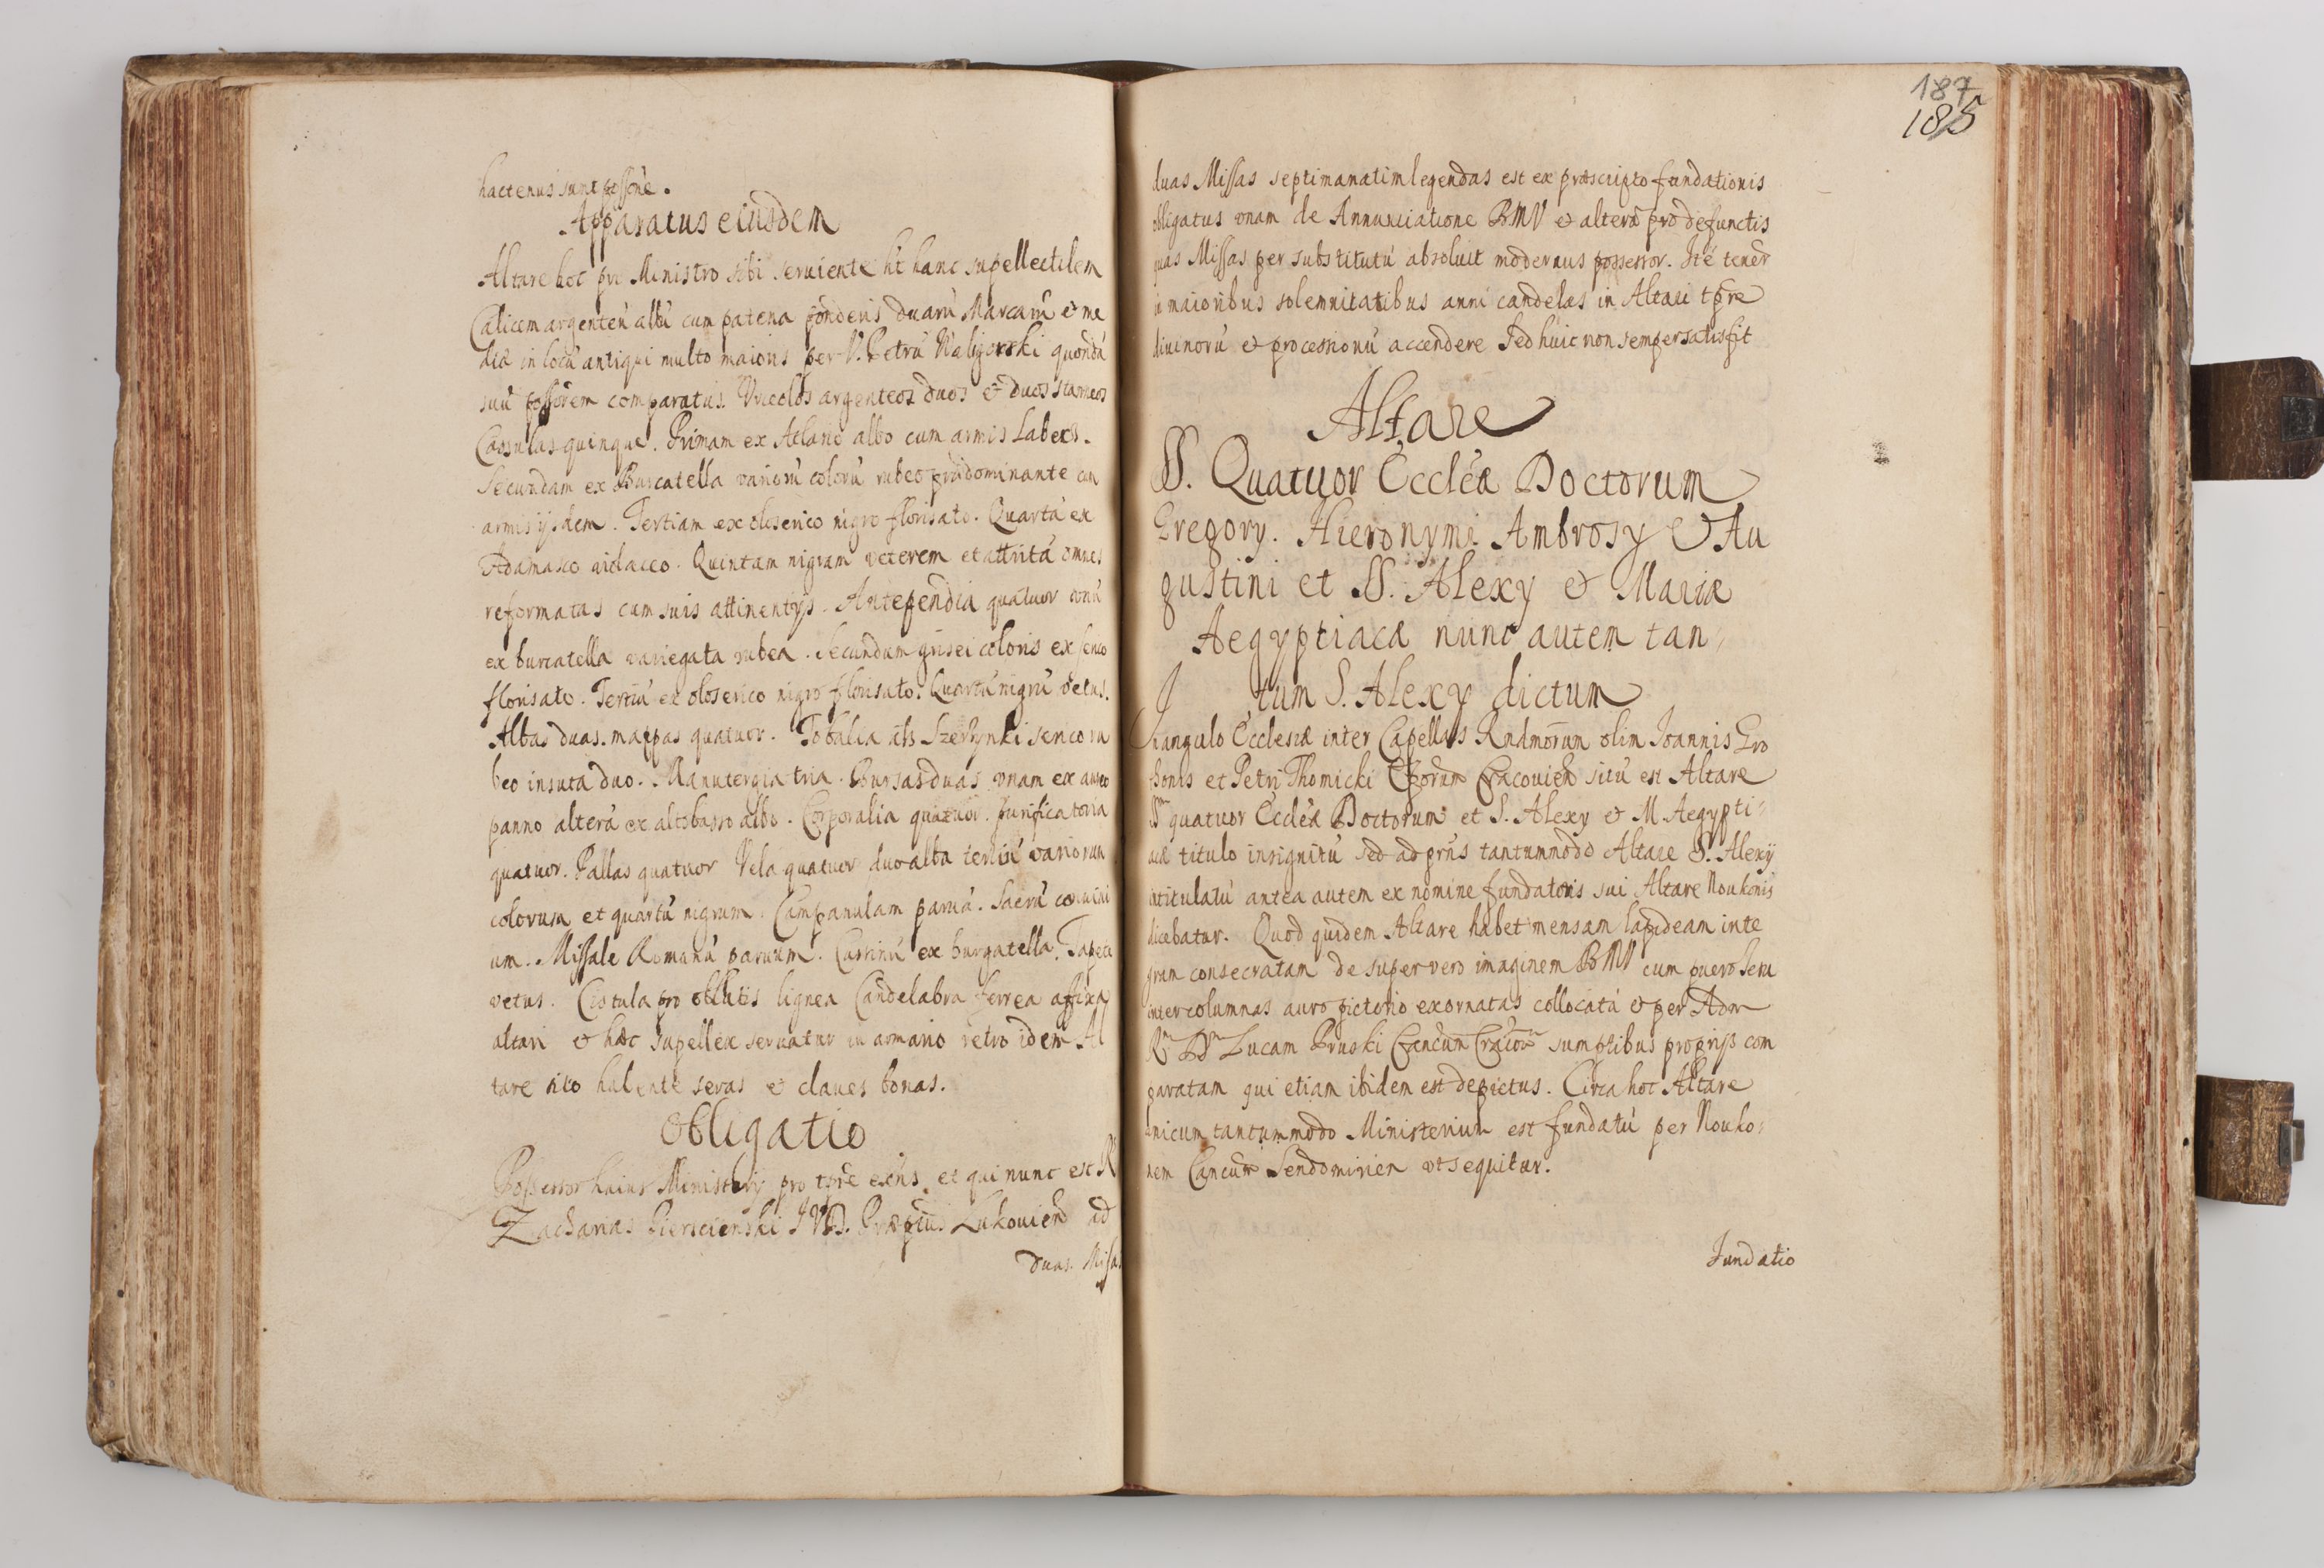 hactenus sunt possone.
Apparatus eiusdem
Altare hoc pro Ministro sibi seruiente ht hanc supellectilem
Calicem argenteū albū cum patena ponderis duarū Marcarū et me
diæ in locū antiqui multo maioris per V. Petrū Waligorski quondā
suū possorem comparatus. Vrceolos argenteos duos et duos stanneos
Casulas quinque. Primam ex Atlano albo cum armis Labens.
Secundam ex Burcatella variorū colorū rubeo prædominante cum
armis ijsdem. Tertiam ex oloserico nigro florisato. Quartā ex
Adamasco violaceo. Quintam nigram veterem et attritā omnes
reformatas cum suis attinentijs. Antependia quatuor vnū
ex burcatella variegata rubea. Secundum grisei coloris ex serico
florisato. Tertiū ex oloserico nigro florisato. Quartū nigrū vetus.
Albas duas. mappas quatuor. Tobalia serico ru
beo insuta duo. Manutergia tria. Bursas duas vnam ex aureo
panno alterā ex altobasso albo. Corporalia quatuor. purificatoria
quatuor. Pallas quatuor Vela quatuor duo alba tertiū variorum
colorum et quartū nigrum. Campanulam paruā. Sacrū conuiui
um. Missale Romanū paruum. Cussinū ex burgatella. Tapeta
vetus. Cistula pro oblatis lignea Candelabra ferrea affixa
altari et hæc supellex seruatur in armario retro idem Al
tare sito habente seras et claues bonas.
Obligatio
Possessor huius Ministerij pro tpre exñs et qui nunc est R
Zacharias Pierscienski I V D. Præptus Lukouien ad
duas Missas
187
185
duas Missas septimanatim legendas est ex præscripto fundationis
obligatus vnam de Annunciatione BMV et alterā pro defunctis
quas Missas per substitutū absoluit modernus possessor. Itē tenēr
in maioribus solemnitatibus anni candelas in Altari tpre
diuinorū et processionū accendere Sed huic non semper satisfit
Altare
SS. Quatuor Eccléæ Doctorum
Gregory. Hieronymi Ambrosy et Au
gustini et SS. Alexy et Mariæ
Aegyptiacæ nunc autem tan
tum S. Alexy dictum
In angulo Ecclesiæ inter Capellas Rndmorum olim Ioannis Gro
thonis et Petri Thomicki Eporum Cracouien sitū est Altare
Srm quatuor Eccléæ Doctorum et S. Alexy et M Aegypti
acæ titulo insignitū sed ad prns tantummodo Altare S. Alexij
intitulatū antea autem ex nomine fundatoris sui Altare Noukonis
dicebatur. Quod quidem Altare habet mensam lapideam inte
gram consecratam desuper vero imaginem BMV cum puero Iesu
inter columnas auro pictorio exornatas collocatā et per Adm
Rm Dm Lucam Pruski Cancum Cracou sumptibus proprijs com
paratam qui etiam ibidem est depictus. Circa hoc Altare
vnicum tantummodo Ministerium est fundatū per Nouko
nem Cancum Sendomirien vt sequitur.
Fundatio